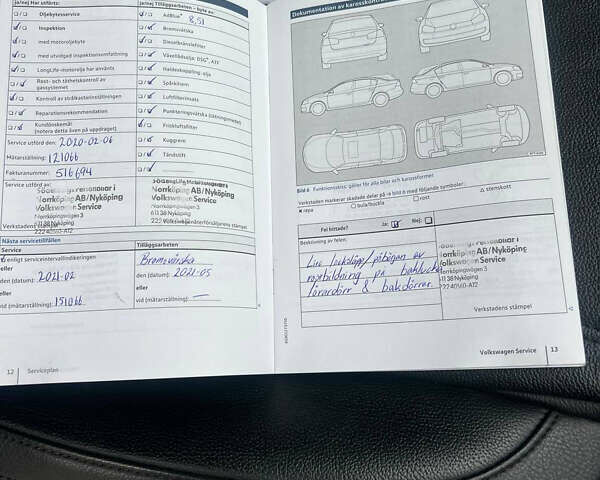 ja/nej Har utförts:
ja/nej Tilläggsarbeten – byte av:
Oljebytesservice
Inspektion
med motoroljebyte
med utvidgad inspektionsomfattning
LongLife-motorolja har använts
Rost- och täthetskontroll av
gassystemet
Kontroll av strålkastarinställningen
Reparationsrekommendation
Kundönskemål
(notera detta även på uppdraget)
Service utförd den: 2020-02-06
Mätarställning: 121066
Fakturanummer: 516694
Service utförd av:
Norrköping AB/Nyköping
Volkswagen Service
Norrköpingsvägen 3
611 38 Nyköping
Verkstadens
AdBlue® 8,51
Bromsvätska
Dieselbränslefilter
Växellådsolja: DSG®, ATF
Haldexkoppling: olja
Spårkilrem
Luftfilterinsats
Punkteringsvätska (tätningsmedel)
Friskluftsfilter
Kuggrem
Tändstift
Norrköping AB/Nyköping
Volkswagen Service
Norrköpingsvägen 3
611 38 Nyköping
Nästa servicetillfällen
Service
Tilläggsarbeten
enligt serviceintervallindikeringen
Bromsvätska
eller
den (datum): 2021-02
den (datum): 2021-05
eller
eller
vid (mätarställning): 151066
vid (mätarställning): —
12 Serviceplan
Dokumentation av karosskontroll
Bild 6 Funktionsskiss: gäller för alla bilar och karossformer
Verkstaden markerar skadade delar på bild 6 med följande symboler:
x repa
○ bula/buckla
□ rost
△ stenskott
Fel hittade?
Ja:
Nej:
Beskrivning av felen:
Lite lackslapp/påbögan av
rostbildning på baklucka
förardörr & bakdörrer.
Norrköping AB/Nyköping
Volkswagen Service
Norrköpingsvägen 3
611 38 Nyköping
Verkstadens stämpel
Volkswagen Service 13